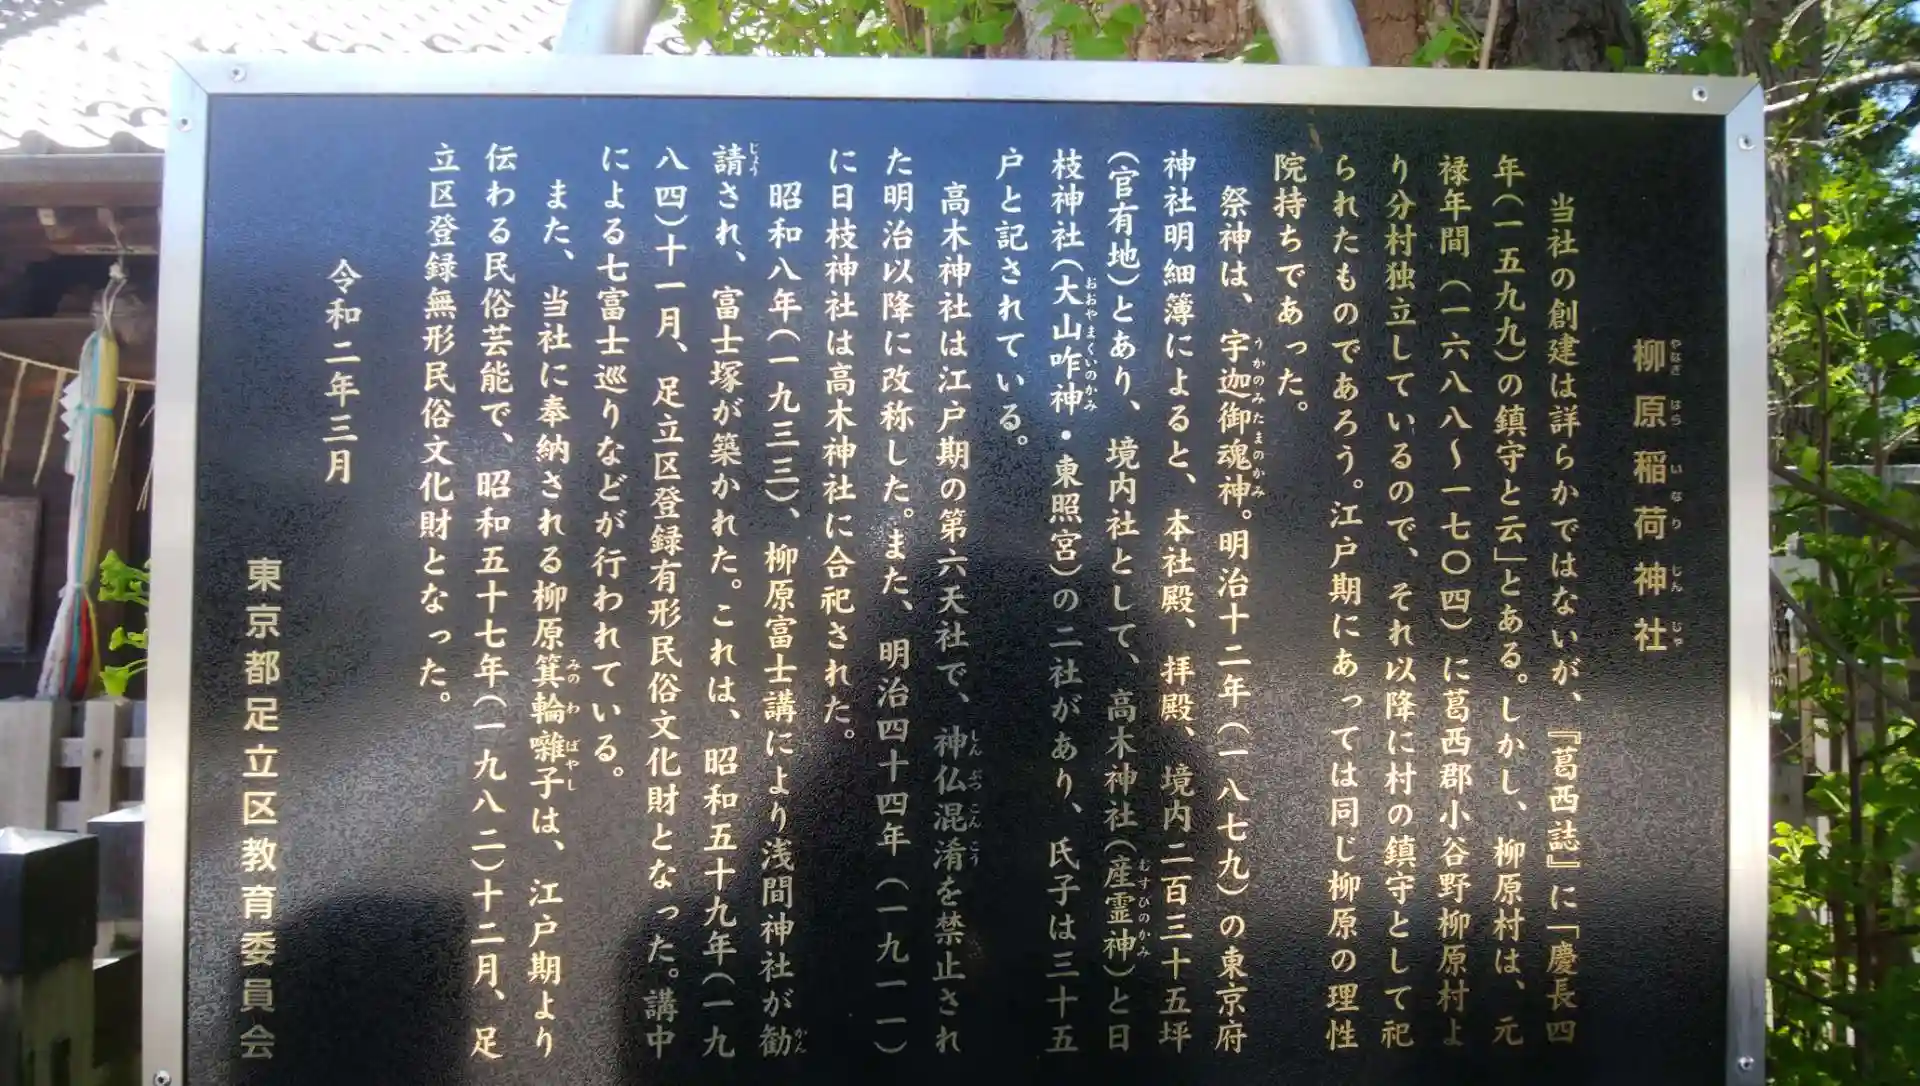 柳原稲荷神社
当社の創建は詳らかではないが、『葛西誌』に「慶長四
年(一五九九)の鎮守と云」とある。しかし、柳原村は、元
禄年間(一六八八〜一七〇四)に葛西郡小谷野柳原村よ
り分村独立しているので、それ以降に村の鎮守として祀
られたものであろう。江戸期にあっては同じ柳原の理性
院持ちであった。
祭神は、宇迦御魂神。明治十二年(一八七九)の東京府
神社明細簿によると、本社殿、拝殿、境内二百三十五坪
(官有地)とあり、境内社として、高木神社(産霊神)と日
枝神社(大山咋神・東照宮)の二社があり、氏子は三十五
戸と記されている。
高木神社は江戸期の第六天社で、神仏混淆を禁止され
た明治以降に改称した。また、明治四十四年(一九一一)
に日枝神社は高木神社に合祀された。
昭和八年(一九三三)、柳原富士講により浅間神社が勧
請され、富士塚が築かれた。これは、昭和五十九年(一九
八四)十一月、足立区登録有形民俗文化財となった。講中
による七富士巡りなどが行われている。
また、当社に奉納される柳原箕輪囃子は、江戸期より
伝わる民俗芸能で、昭和五十七年(一九八二)十二月、足
立区登録無形民俗文化財となった。
令和二年三月
東京都足立区教育委員会